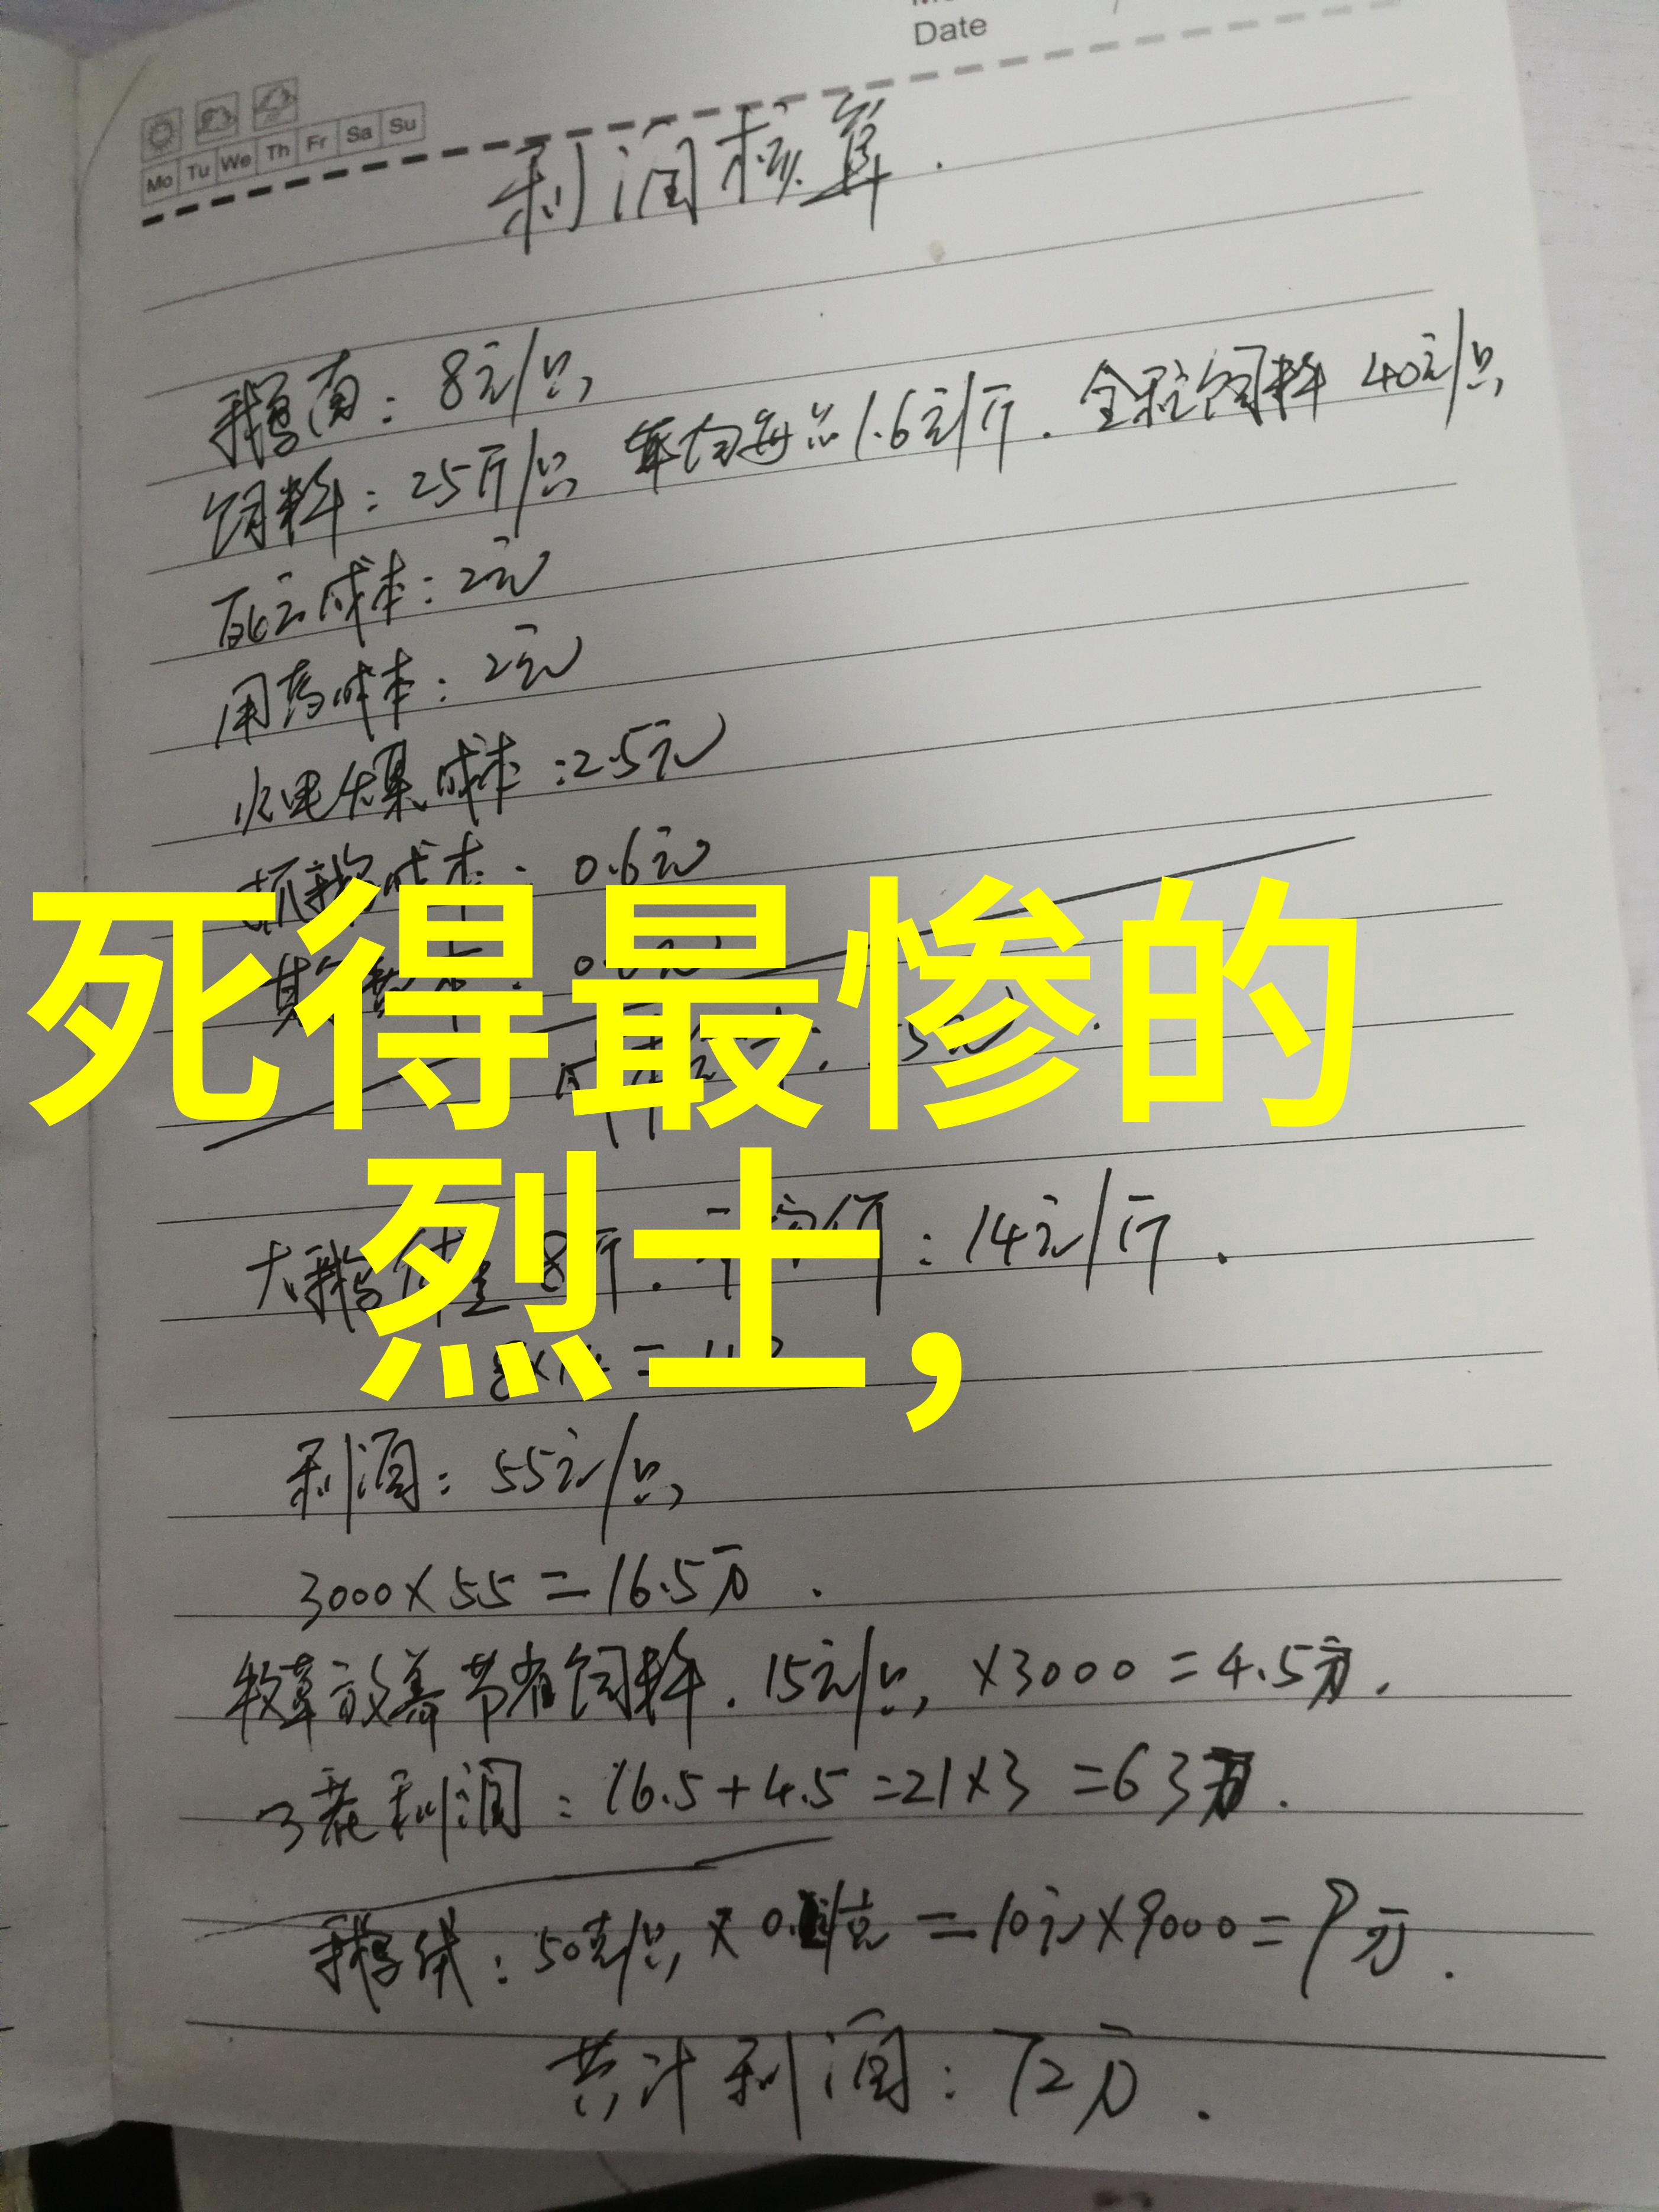 Date
Mo Tu We Th Fr Sa Su
利润核算.
鹅苗: 8元/只
饲料: 25斤/只 平均每斤1.6元/斤. 全程饲料 40元/只
死亡成本: 2元
用药成本: 2元
水电煤成本: 2.5元
抓鹅成本: 0.6元
死得最惨的
烈士,
大鹅体重 8斤. 平均价: 14元/斤.
8×14=112
利润: 55元/只
3000×55=16.5万.
牧草放养节省饲料. 15元/只 ×3000=4.5万.
3茬利润: 16.5+4.5=21×3=63万.
鹅绒: 50克/只 × /克 = 10元×9000=9万.
共计利润: 72万.